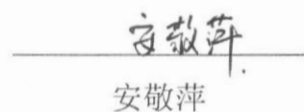 安敬萍
安敬萍